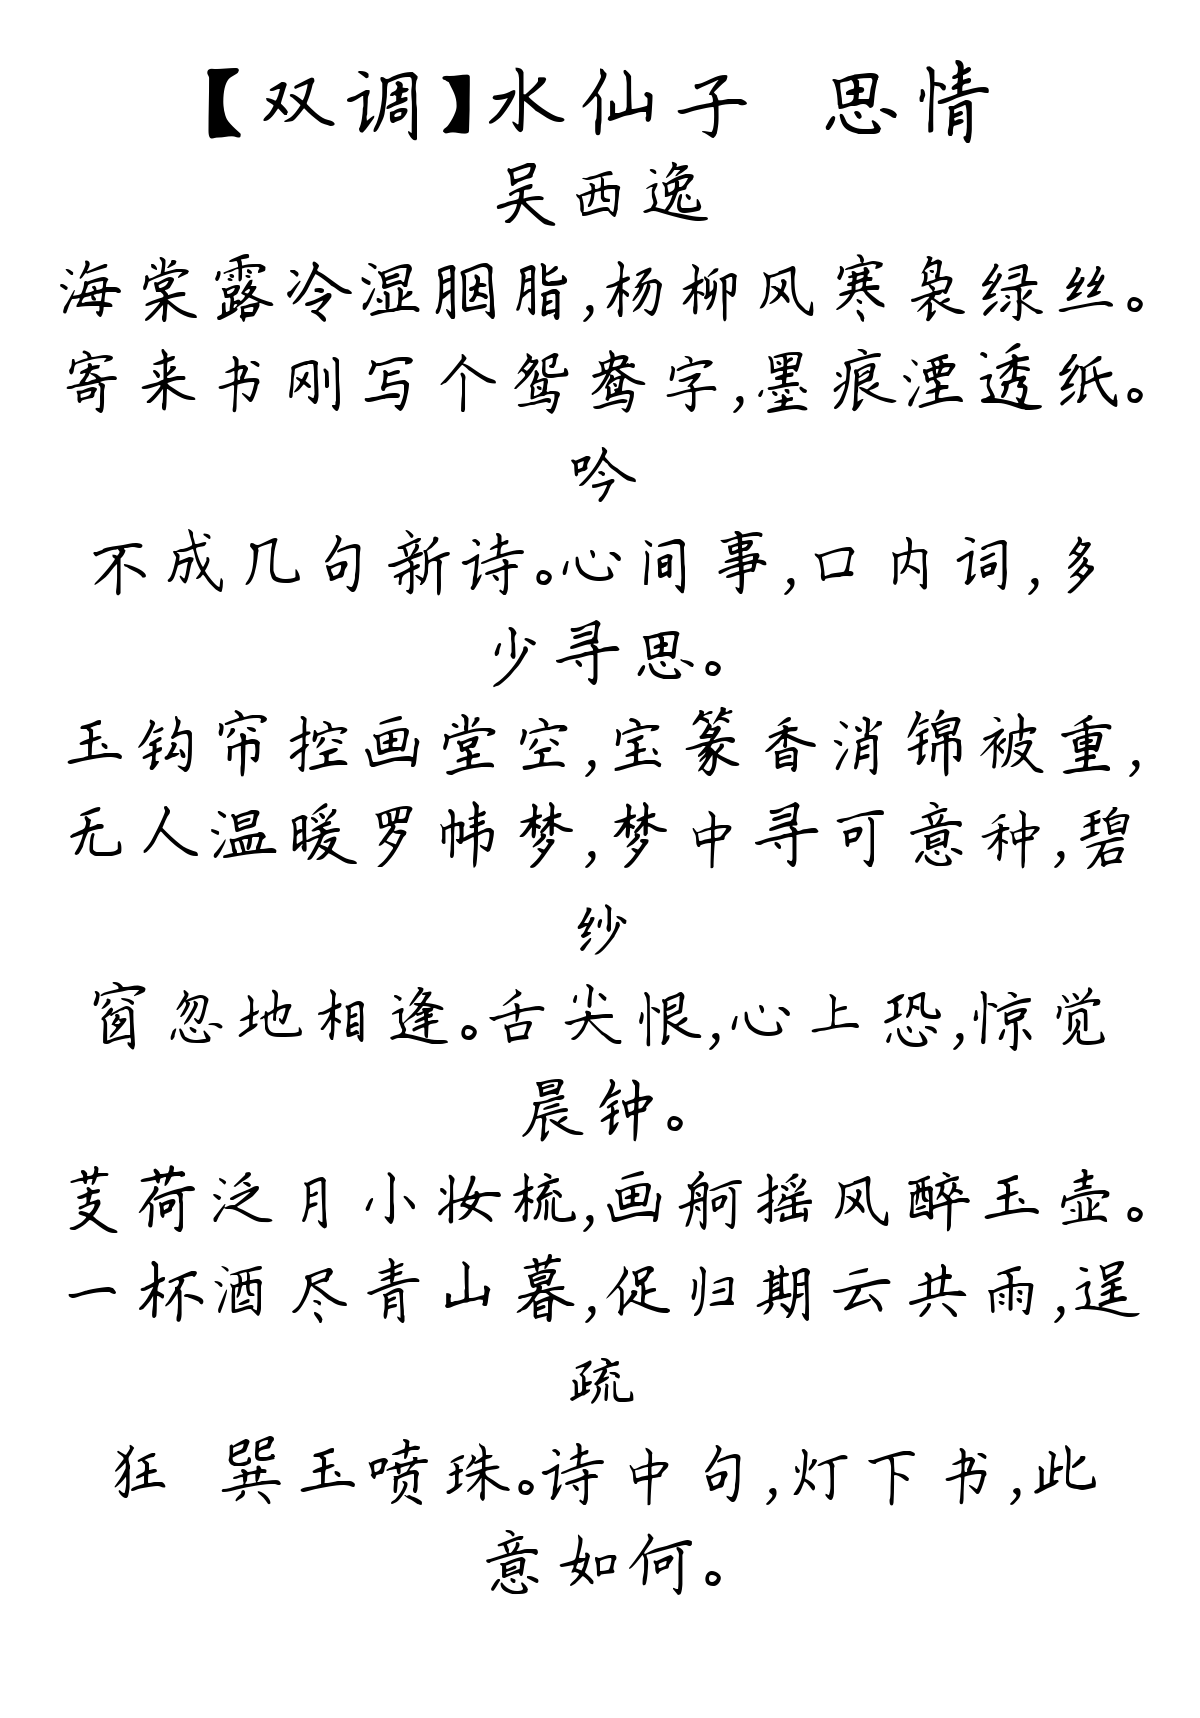 【双调】水仙子 思情
吴西逸
海棠露冷湿胭脂,杨柳风寒袅绿丝。
寄来书刚写个鸳鸯字,墨痕湮透纸。
吟
不成几句新诗。心间事,口内词,多
少寻思。
玉钩帘控画堂空,宝篆香消锦被重,
无人温暖罗帏梦,梦中寻可意种,碧
纱
窗忽地相逢。舌尖恨,心上恐,惊觉
晨钟。
芰荷泛月小妆梳,画舸摇风醉玉壶。
一杯酒尽青山暮,促归期云共雨,逞
疏
狂 巽玉喷珠。诗中句,灯下书,此
意如何。